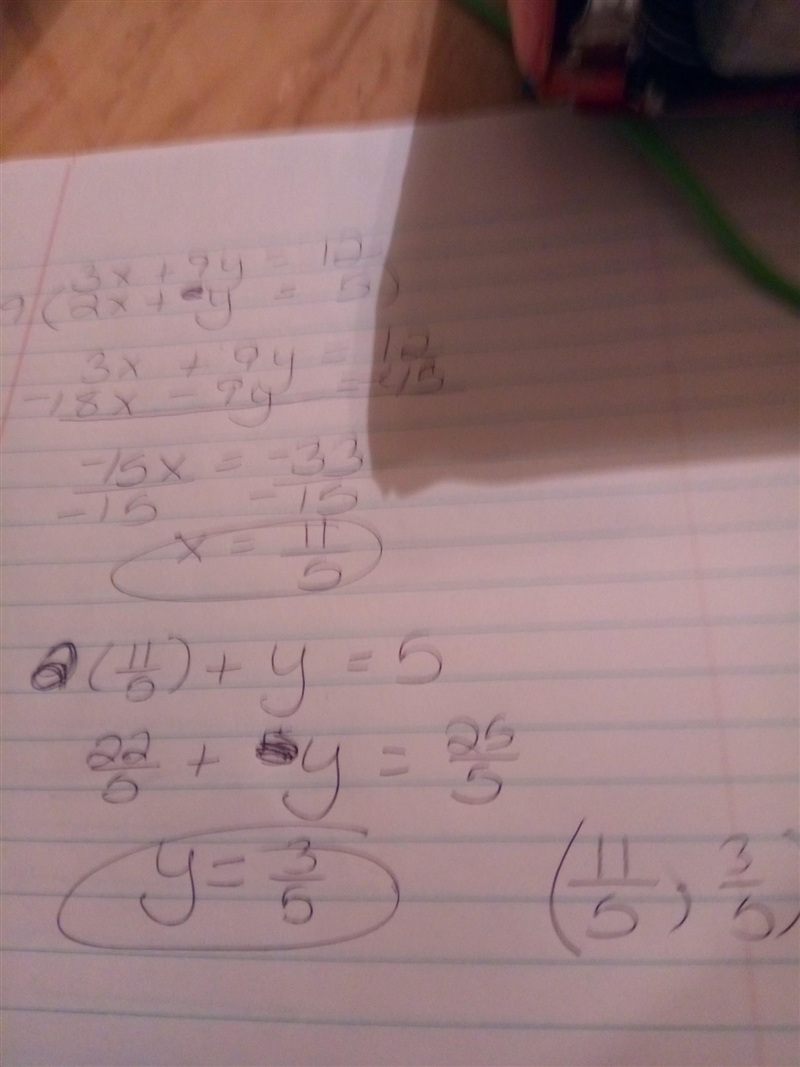 3x + 9y = 12
9(2x + y = 5)
3x + 9y = 12
-18x - 9y = -45
-15x = -33
-15 -15
x = 11/5
2(11/5) + y = 5
22/5 + y = 25/5
y = 3/5 (11/5, 3/5)